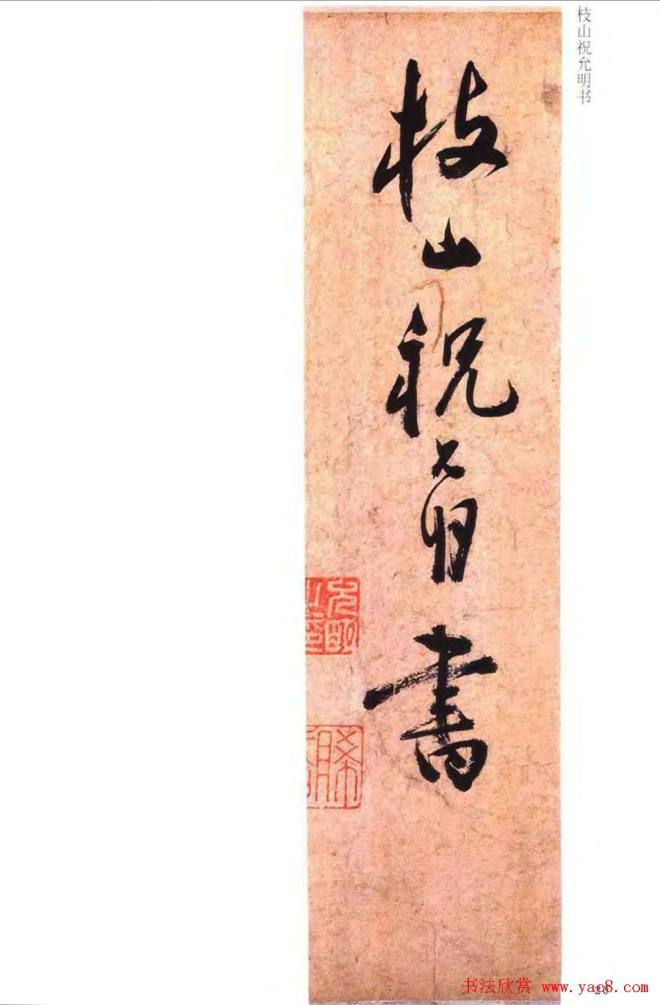 枝山祝允明书
枝山祝允明書
允明
书法欣赏 www.yac8.com